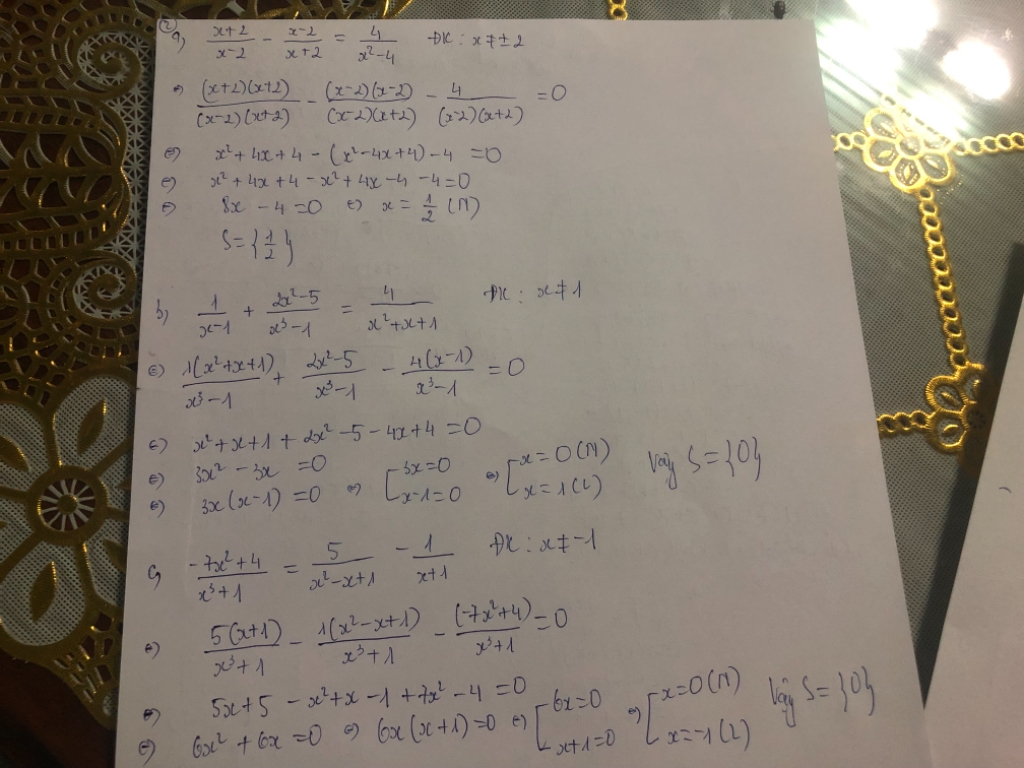 ② a, (x+2)/(x-2) - (x-2)/(x+2) = 4/(x²-4) ĐK: x ≠ ±2
⇔ (x+2)(x+2)/(x-2)(x+2) - (x-2)(x-2)/(x-2)(x+2) - 4/(x-2)(x+2) = 0
⇔ x² + 4x + 4 - (x² - 4x + 4) - 4 = 0
⇔ x² + 4x + 4 - x² + 4x - 4 - 4 = 0
⇔ 8x - 4 = 0 ⇔ x = 1/2 (N)
S = {1/2}
b, 1/(x-1) + (2x²-5)/(x³-1) = 4/(x²+x+1) ĐK: x ≠ 1
⇔ 1(x²+x+1)/(x³-1) + (2x²-5)/(x³-1) - 4(x-1)/(x³-1) = 0
⇔ x² + x + 1 + 2x² - 5 - 4x + 4 = 0
⇔ 3x² - 3x = 0
⇔ 3x(x-1) = 0 ⇔ [3x = 0 x-1 = 0 ⇔ [x = 0 (N) x = 1 (L) Vậy S = {0}
c, (-7x²+4)/(x³+1) = 5/(x²-x+1) - 1/(x+1) ĐK: x ≠ -1
⇔ 5(x+1)/(x³+1) - 1(x²-x+1)/(x³+1) - (-7x²+4)/(x³+1) = 0
⇔ 5x + 5 - x² + x - 1 + 7x² - 4 = 0
⇔ 6x² + 6x = 0 ⇔ 6x(x+1) = 0 ⇔ [6x = 0 x+1 = 0 ⇔ [x = 0 (N) x = -1 (L) Vậy S = {0}